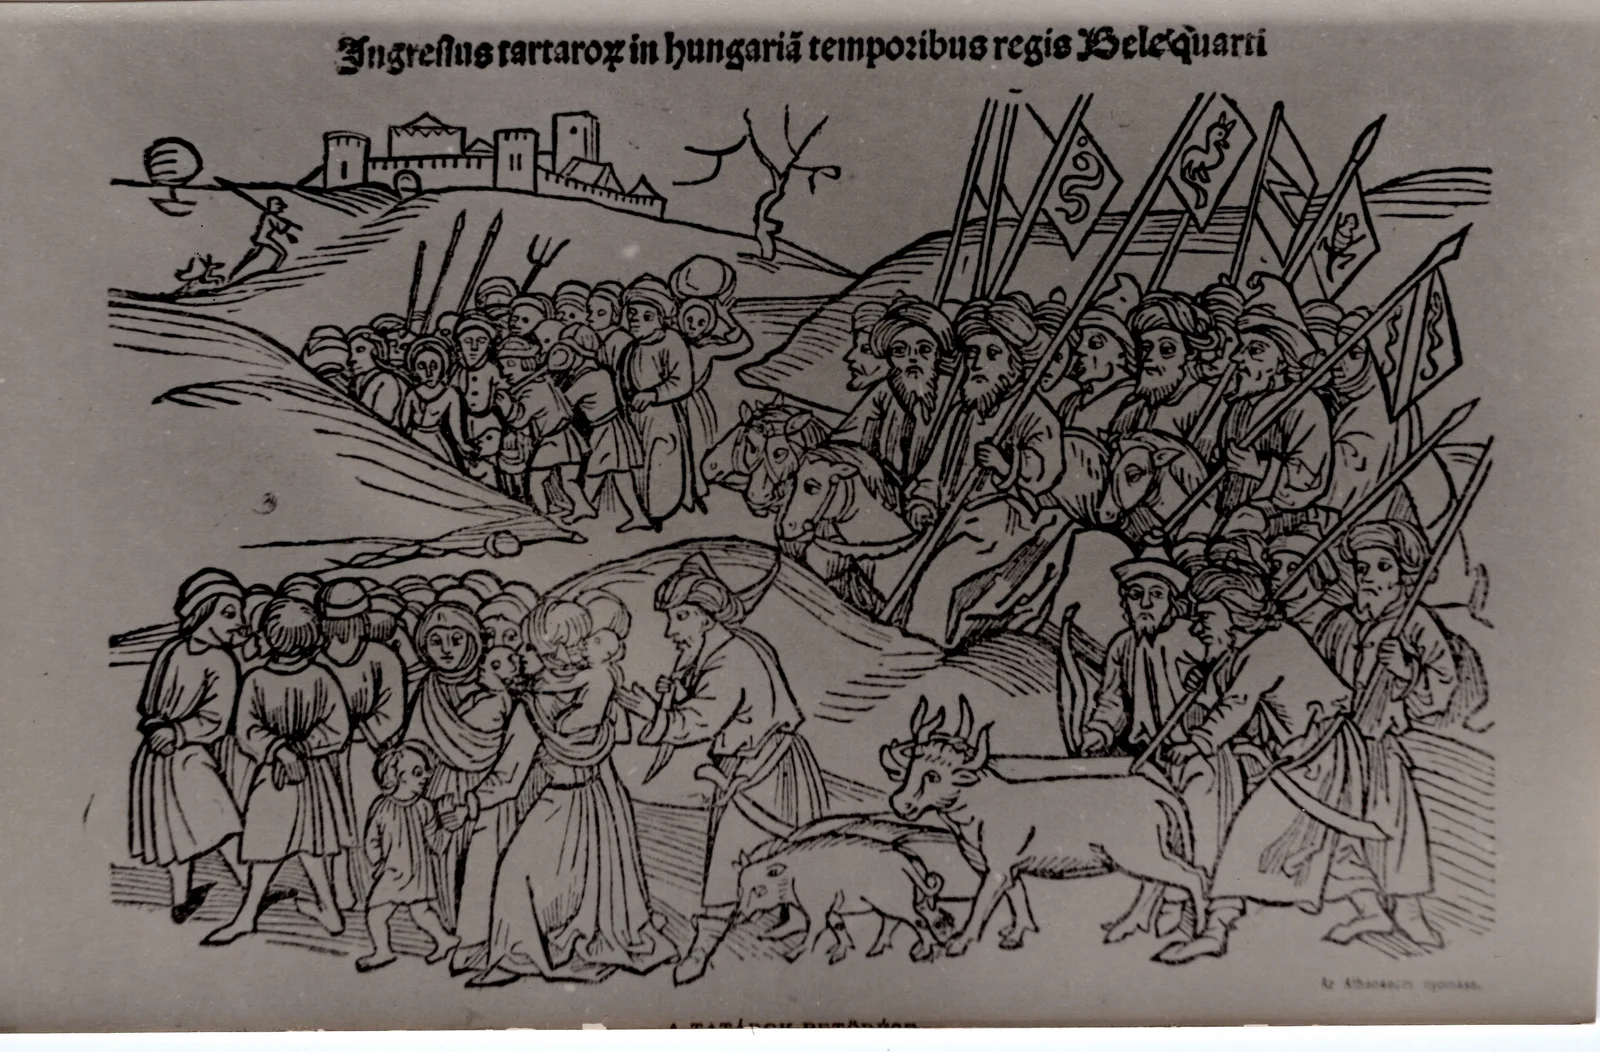 Ingressus tartaroꝝ in hungariā temporibus regis Bele quarti
Az Athenaeum nyomása.
A TATÁROK BETÖRÉSE